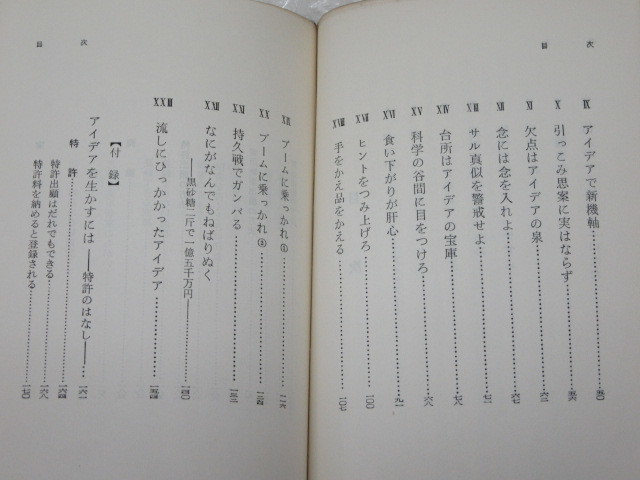 目次
Ⅸ アイデアで新機軸
Ⅹ 引っこみ思案に実はならず
Ⅺ 欠点はアイデアの泉
Ⅻ 念には念を入れよ
XⅢ サル真似を警戒せよ
XⅣ 台所はアイデアの宝庫
XⅤ 科学の谷間に目をつけろ
XⅥ 食い下がりが肝心
XⅦ ヒントをつみ上げろ
XⅧ 手をかえ品をかえる
目次
XⅨ ブームに乗っかれ①
XX ブームに乗っかれ②
XXⅠ 持久戦でガンバる
XXⅡ なにがなんでもねばりぬく
――黒砂糖二斤で一億五千万円――
XXⅢ 流しにひっかかったアイデア
【付録】
アイデアを生かすには――特許のはなし――
特許
特許出願はだれでもできる
特許料を納めると登録される